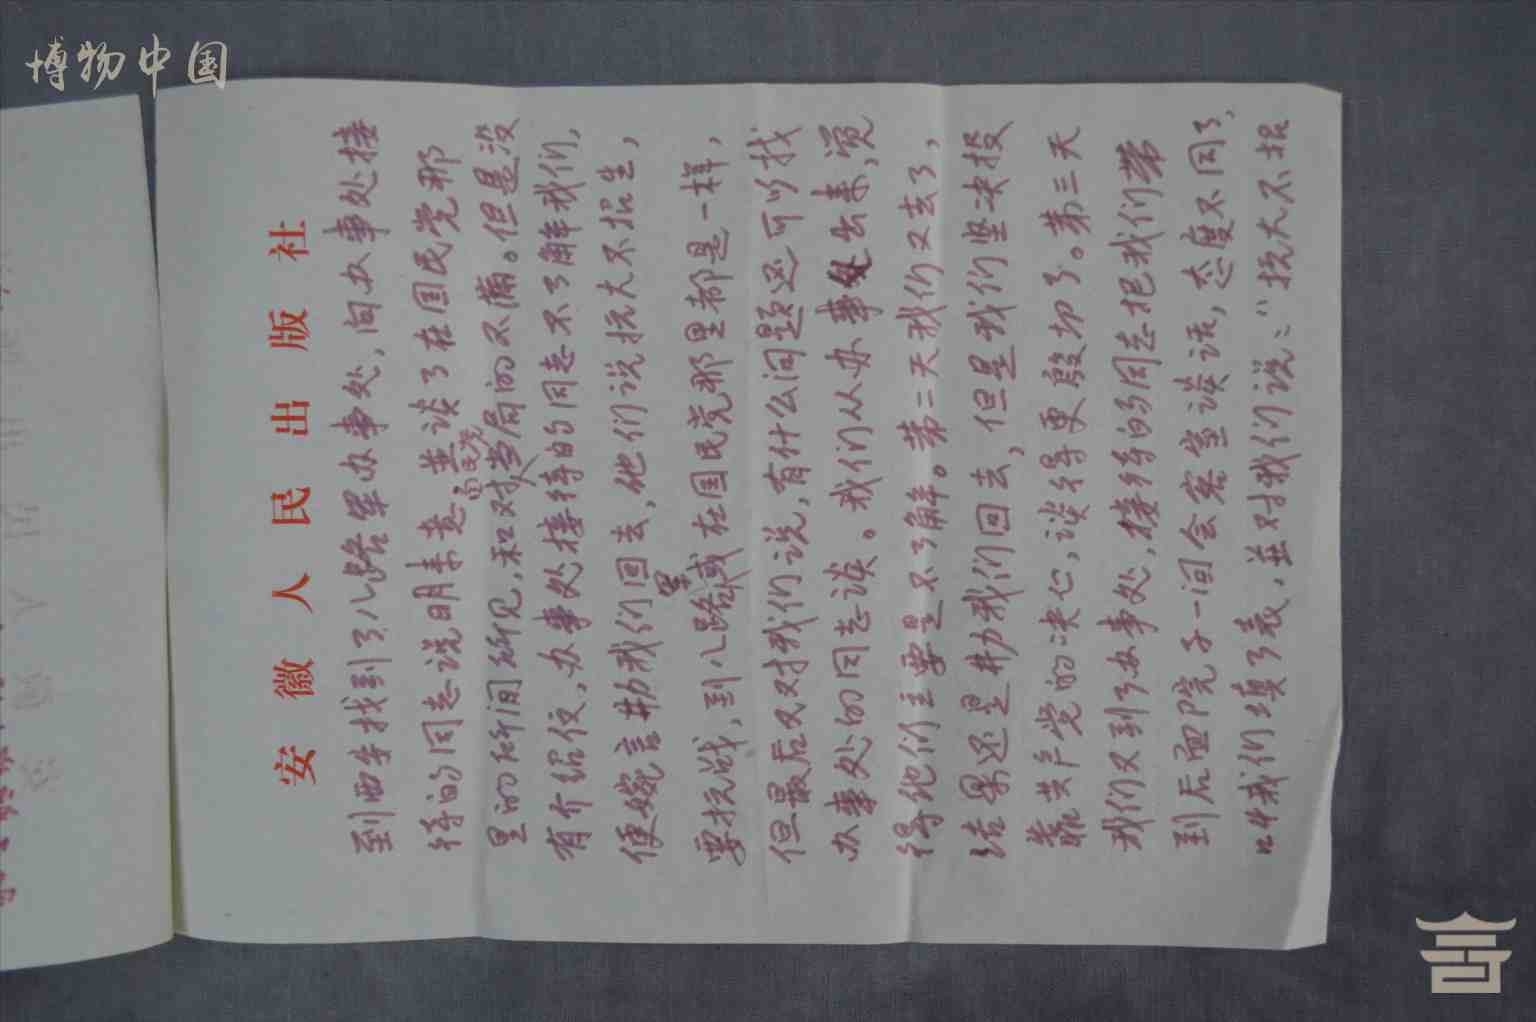 博物中国
安徽人民出版社
到西安找到了八路军办事处，向办事处接
待的同志说明来意，並谈了在国民党那
里的所间所见，和对国民党当局的不满。但是没
有介绍仪，办事处接待的同志不了解我们，
便婉言劝我们回去，他们说抗大不招生，
要抗战，到八路军或在国民党那里都是一样，
但最后又对我们说，有什么问题还可以找
办事处的同志谈。我们从办事处出来，觉
得他们主要是不了解。第二天我们又去了，
结果还是劝我们回去，但是我们坚决投
靠共产党的决心，谈得更殷切了。第三天
我们又到了办事处，接待的同志把我们带
到后面院子一间会客室谈话，态度不同了，
叫我们填了表，並对我们说：“抗大不招